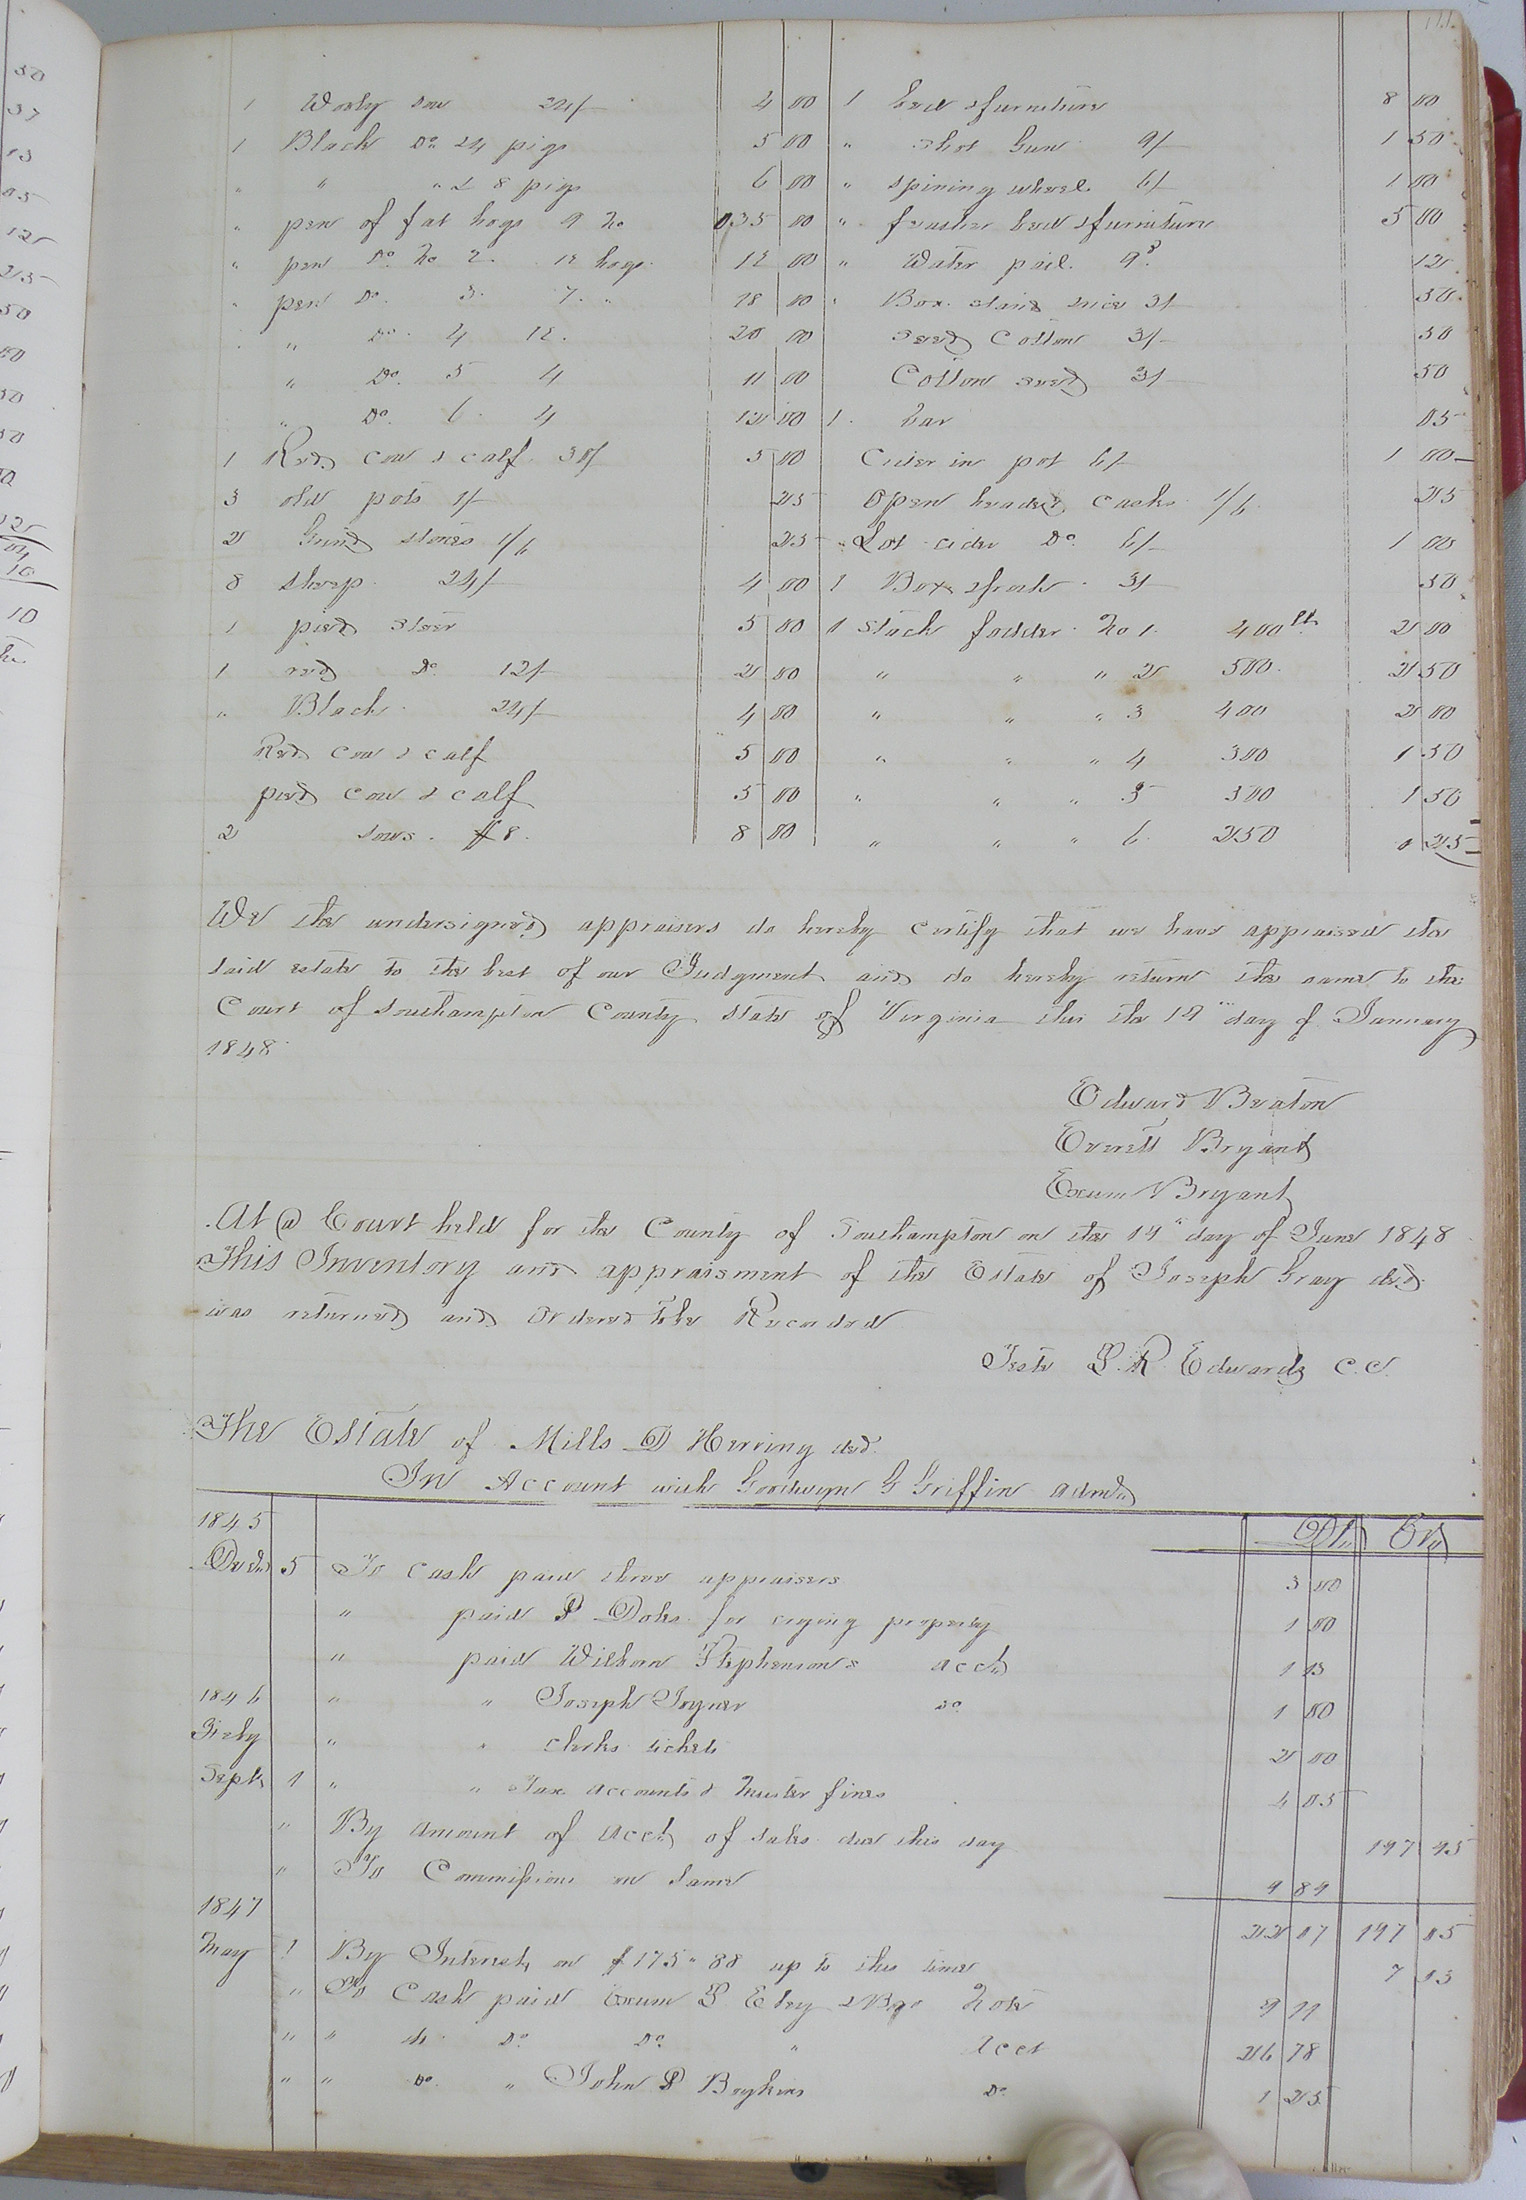 1 Wooly sow 24/- 4 00
1 Black Do 24 pigs 5 00
" " " & 8 pigs 6 00
" pen of fat hogs 9 No 35 00
" pen Do. No 2. 12 hogs 12 00
" pen Do. 3. 7. " 18 00
" Do. 4 12. 20 00
" Do. 5 4 11 00
" Do. 6. 4 12 00
1 Red cow & calf 30/ 5 00
3 old pots 1/- 25
2 Grind stones 1/6 25
8 sheep 24/- 4 00
1 pied steer 5 00
1 red Do 12/- 2 00
" Black 24/- 4 00
Red cow & calf 5 00
pied cow & calf 5 00
2 sows. $8. 8 00
1 bed & furniture 8 00
" Shot Gun 9/- 1 50
" spining wheel 6/- 1 00
" feather bed & furniture 5 00
" Water pail. 9d. 12
" Box 3/ 50
seed Cotton 3/- 50
Cotton seed 3/- 50
1 bar 05
Cider in pot 6/- 1 00
Open headed casks 1/6 25
" Lot cider Do 6/- 1 00
1 Box 3/ 50
1 Stack fodder No 1. 400 lb 2 00
" " " 2 500. 2 50
" " " 3 400 2 00
" " " 4 300 1 50
" " " 5 300 1 50
" " " 6. 250 1 25
We the undersigned appraisers do hereby certify that we have appraised the
said estate to the best of our Judgment and do hereby return the same to the
Court of Southampton County State of Virginia this the 19" day of January
1848
Edward Beaton
Everett Bryant
Exum Bryant
At a Court held for the County of Southampton on the 19" day of June 1848
This Inventory and appraisment of the Estate of Joseph Gray decd
was returned and Ordered to be Recorded
Teste L. R. Edwards C. C.
The Estate of Mills D Herring decd.
In Account with Goodwyn G Griffin admr
1845 Dr Cr
Decr 5 To Cash paid three appraisers 3 00
" paid P for crying property 1 00
" paid Wilborn Stephenson's acct 1 13
1846 " " Joseph Joyner do 1 00
Feby " " clerks tickets 2 00
Sept 1 " " Tax accounts & Muster fines 4 05
" By amount of acct of sales due this day 197 95
" To Commissions on same 9 89
1847 22 07 197 95
May 1 By Interest on $175"88 up to this time 7 03
" To Cash paid Exum P & Bro Note 9 99
" " Do. Do. " Acct 26 78
" " Do " John P Boykins Do 1 25